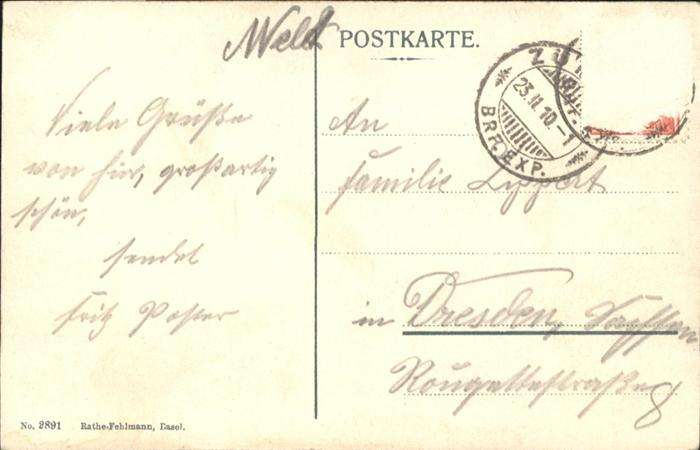 Welt
POSTKARTE.
ZÜ
23.II.10.-1
BRF.EXP.
Viele Grüße
von hier, großartig
schön,
sendet
Fritz
An
Familie Lippert
in Dresden, Sachsen
8
No. 2891 Rathe-Fehlmann, Basel.